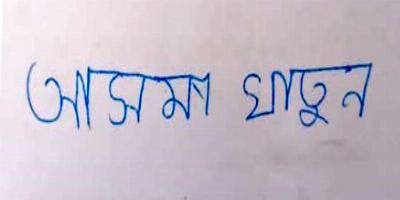 আসমা খাতুন